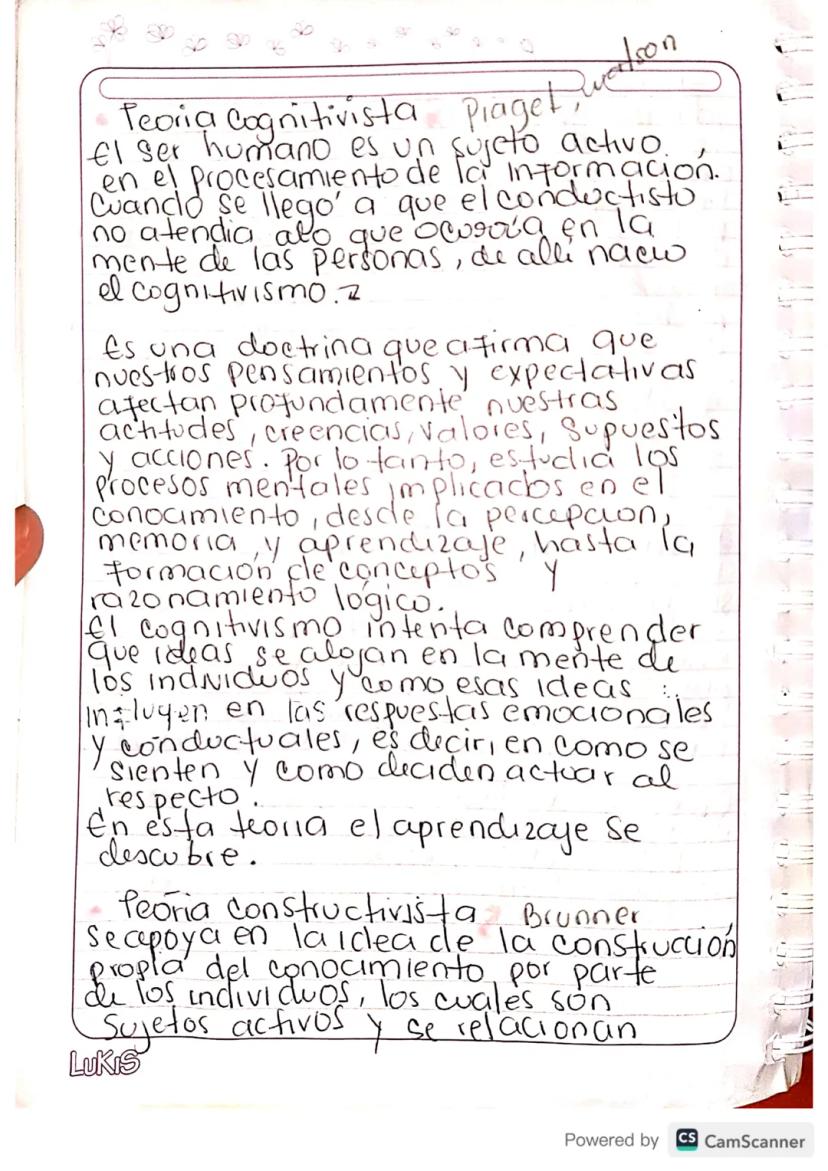 Teoria Cognitivista Piaget, Watson
El ser humano es un sujeto activo,
en el procesamiento de la información.
Cuando se llegó a que el conductisto
no atendia alo que ocurría en la
mente de las personas, de allí nacio
el cognitivismo.
Es una doctrina que afirma que
nuestros pensamientos y expectativas
afectan profundamente nuestras
actitudes, creencias, valores, supuestos
y acciones. Por lo tanto, estudia los
procesos mentales implicados en el
conocimiento, desde la percepcion,
memoria, y aprendizaje, hasta la
formación de conceptos y
razonamiento lógico.
El cognitivismo intenta comprender
que ideas se alojan en la mente de
los individuos y como esas ideas
influyen en las respuestas emocionales
y conductuales, es decir, en como se
sienten y como deciden actuar al
respecto.
En esta teoria el aprendizaje se
descubre.
Teoria constructivista Brunner
se apoya en la idea de la construcción
propia del conocimiento por parte
de los individuos, los cuales son
sujetos activos y se relacionan
LUKIS
Powered by CS CamScanner